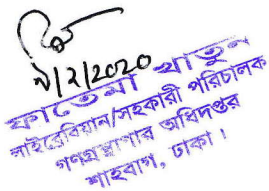 ৯/২/2020
ফাতেমা খাতুন
লাইব্রেরিয়ান/সহকারী পরিচালক
গণগ্রন্থাগার অধিদপ্তর
শাহবাগ, ঢাকা।